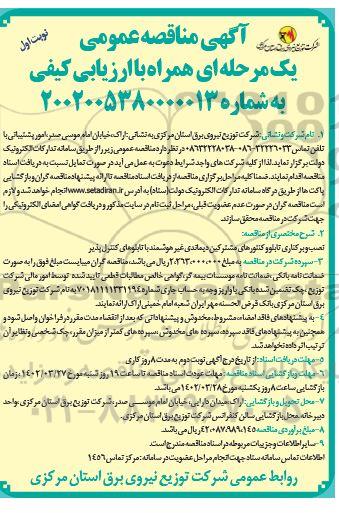 نوبت اول
شرکت توزیع نیروی برق استان مرکزی
آگهی مناقصه عمومی
یک مرحله ای همراه با ارزیابی کیفی
به شماره ۲۰۰۲۰۰۵۳۸۰۰۰۰۰۱۳
۱. نام شرکت ونشانی: شرکت توزیع نیروی برق استان مرکزی به نشانی: اراک،خیابان امام موسی صدر،امور پشتیبانی با
تلفن تماس ۳۲۲۲۶۰۲۳-۰۸۶ در نظر دارد مناقصه عمومی زیر را از طریق سامانه تدارکات الکترونیک
دولت برگزار نماید.لذا از کلیه شرکت های واجد شرایط دعوت به عمل می آید در صورت تمایل نسبت به دریافت اسناد
مناقصه اقدام نمایند.ضمنا کلیه مراحل برگزاری مناقصه از دریافت اسناد مناقصه تا ارائه پیشنهاد مناقصه گران و بازگشایی
پاکت ها از طریق درگاه سامانه تدارکات الکترونیک دولت (ستاد) به آدرس www.setadiran.ir انجام خواهد شد و لازم
است مناقصه گران در صورت عدم عضویت قبلی، مراحل ثبت نام در سایت مذکور و دریافت گواهی امضای الکترونیکی را
جهت شرکت در مناقصه محقق سازند.
۲. شرح مختصری از مناقصه:
نصب و برکناری تابلو و کنتور های مشترکین دیماندی غیر هوشمند با تابلوهای کنترل پذیر
۳-سپرده شرکت در مناقصه به مبلغ ۲،۲۱۳،۰۰۰،۰۰۰ ریال می باشد،مناقصه گران میبایست مبلغ فوق را به صورت
ضمانت نامه بانکی،ضمانت نامه موسسات بیمه گر،گواهی خالص مطالبات قطعی تایید شده توسط امور مالی شرکت
توزیع،چک تضمین شده بانکی یا واریز وجه به حساب جاری شماره به نام شرکت توزیع نیروی
برق استان مرکزی بانک قرض الحسنه مهر ایران شعبه امام خمینی اراک ارائه نمایند.
۴- به پیشنهادهای فاقد امضاء،مشروط،مخدوش و پیشنهاداتی که بعد از انقضاء مدت مقرر در فراخوان واصل شود و
همچنین به پیشنهادهای فاقد سپرده،سپرده های مخدوش،سپرده های کمتر از میزان مقرر،چک شخصی و نظایر آن
ترتیب اثر داده نخواهد شد.
۵-مهلت دریافت اسناد: از تاریخ درج آگهی نوبت دوم به مدت ۸ روز کاری
۶-مهلت و بازگشایی اسناد مناقصه: مهلت عودت اسناد مناقصه تا ساعت ۱۹ روز شنبه مورخ ۱۴۰۲/۰۳/۲۷ ؛زمان
بازگشایی ساعت ۸ روز یکشنبه مورخ ۱۴۰۲/۰۳/۲۸ می باشد.
۷-محل تحویل و بازگشایی: اراک،میدان دارایی،خیابان امام موسی صدر،شرکت توزیع برق استان مرکزی،واحد
دبیرخانه.محل بازگشایی سالن کنفرانس شرکت توزیع برق استان مرکزی.
۸-مبلغ برآوردی مناقصه ریال می باشد.
۹-سایر اطلاعات و جزییات مربوطه در اسناد مناقصه مندرج است.
اطلاعات تماس سامانه ستاد جهت انجام مراحل عضویت در سامانه: مرکز تماس ۱۴۵۶
روابط عمومی شرکت توزیع نیروی برق استان مرکزی